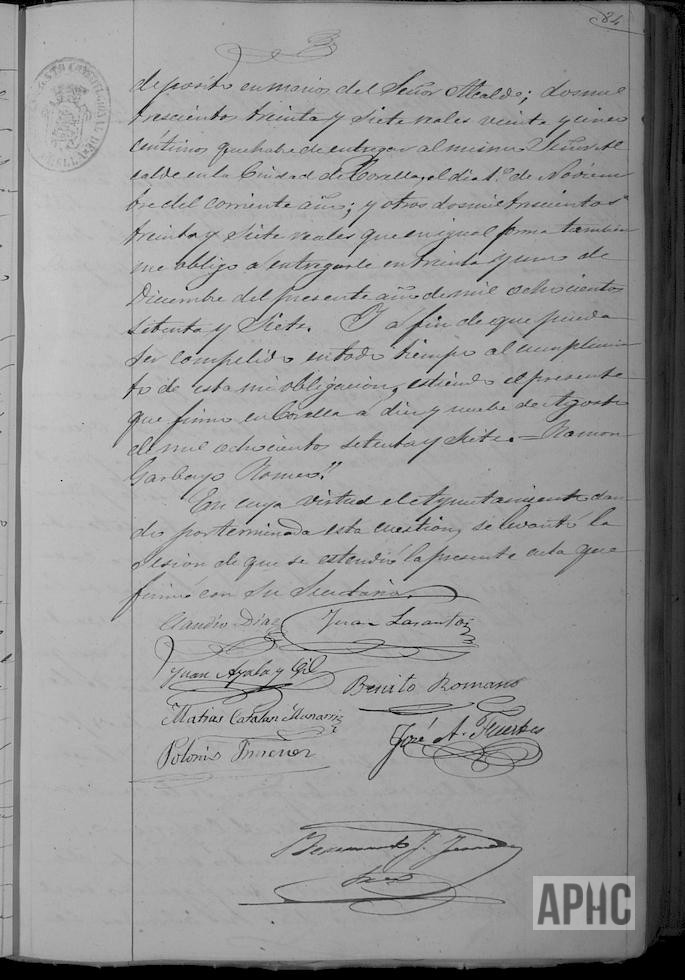 84
deposito en manos del Señor Alcalde; dos mil
trescientos treinta y siete reales veinte y cinco
centimos que habre de entregar al mismo Señor Al
calde en la Ciudad de Corella, el dia 1º de Noviem
bre del corriente año; y otros dos mil trescientos
treinta y siete reales que en igual forma tambien
me obligo a entregarle en treinta y uno de
Diciembre del presente año de mil ochocientos
setenta y siete. Y a fin de que pueda
ser compelido en todo tiempo al cumplimien
to de esta mi obligación, estiendo el presente
que firmo en Corella a diez y nueve de Agosto
de mil ochocientos setenta y siete. = Ramon
Garbayo Romeo."
En cuya virtud el Ayuntamiento dan
do por terminada esta cuestion, se levantó la
sesion de que se estendió la presente acta que
firmó con su Secretario.
Claudio Diaz Juan Lasanta
Juan Ayala y Gil
Benito Romano
Matias Catalan
José A. Fuertes
Polonio Jimenez
J.
APHC